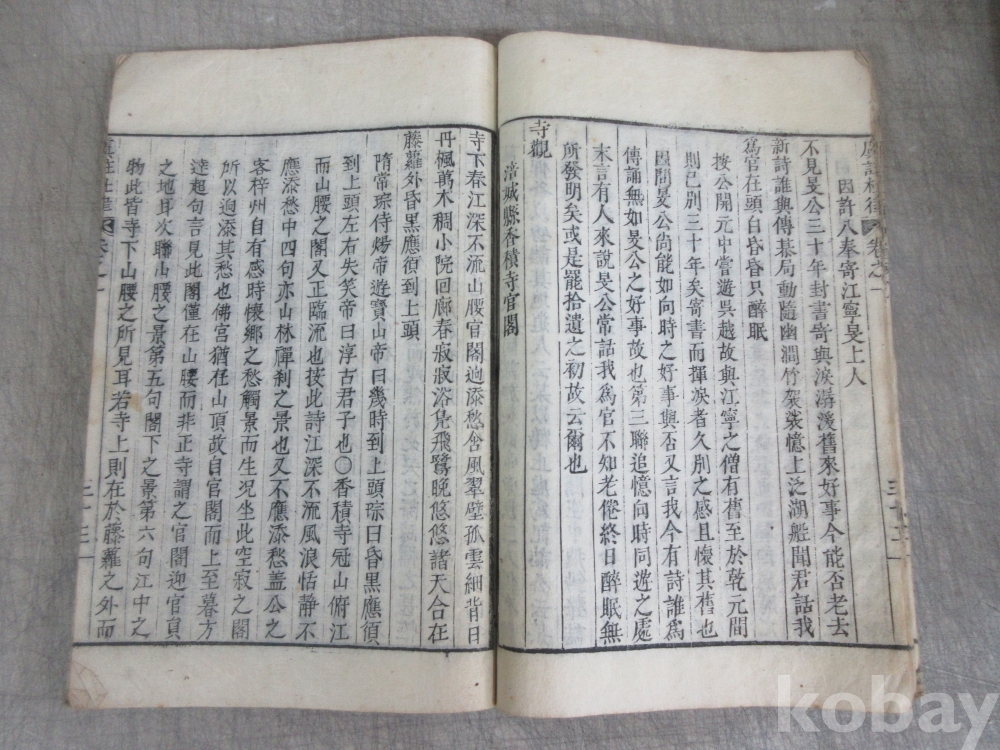 因許八奉寄江寧旻上人
不見旻公三十年封書寄與淚潺湲舊來好事今能否老去
新詩誰與傳棊局動隨幽澗竹袈裟憶上泛湖船聞君話我
爲官在頭白昏昏只醉眠
按公開元中嘗遊吳越故與江寧之僧有舊至於乾元間
則已別三十年矣寄書而揮淚者久別之感且懷其舊也
因問旻公尚能如向時之好事與否又言我今有詩誰爲
傳誦無如旻公之好事故也第三聯追憶向時同遊之處
末言有人來說旻公常話我爲官不知老倦終日醉眠無
所發明矣或是罷拾遺之初故云爾也
寺觀
涪城縣香積寺官閣
寺下春江深不流山腰官閣迥添愁含風翠壁孤雲細背日
丹楓萬木稠小院回廊春寂寂浴鳧飛鷺晚悠悠諸天合在
藤蘿外昏黑應須到上頭
隋常琮侍煬帝遊寶山帝曰幾時到上頭琮曰昏黑應須
到上頭左右失笑帝曰淳古君子也○香積寺冠山俯江
而山腰之閣又正臨流也按此詩江深不流風浪恬靜不
應添愁中四句亦山林禪刹之景也又不應添愁蓋公之
客梓州自有感時懷鄉之愁觸景而生况坐此空寂之閣
所以迥添其愁也佛宮猶在山頂故自官閣而上至暮方
達起句言見此閣僅在山腰而非正寺謂之官閣迎官員
之地耳次聯山腰之景第五句閣下之景第六句江中之
物此皆寺下山腰之所見耳若寺上則在於藤蘿之外而
kobay